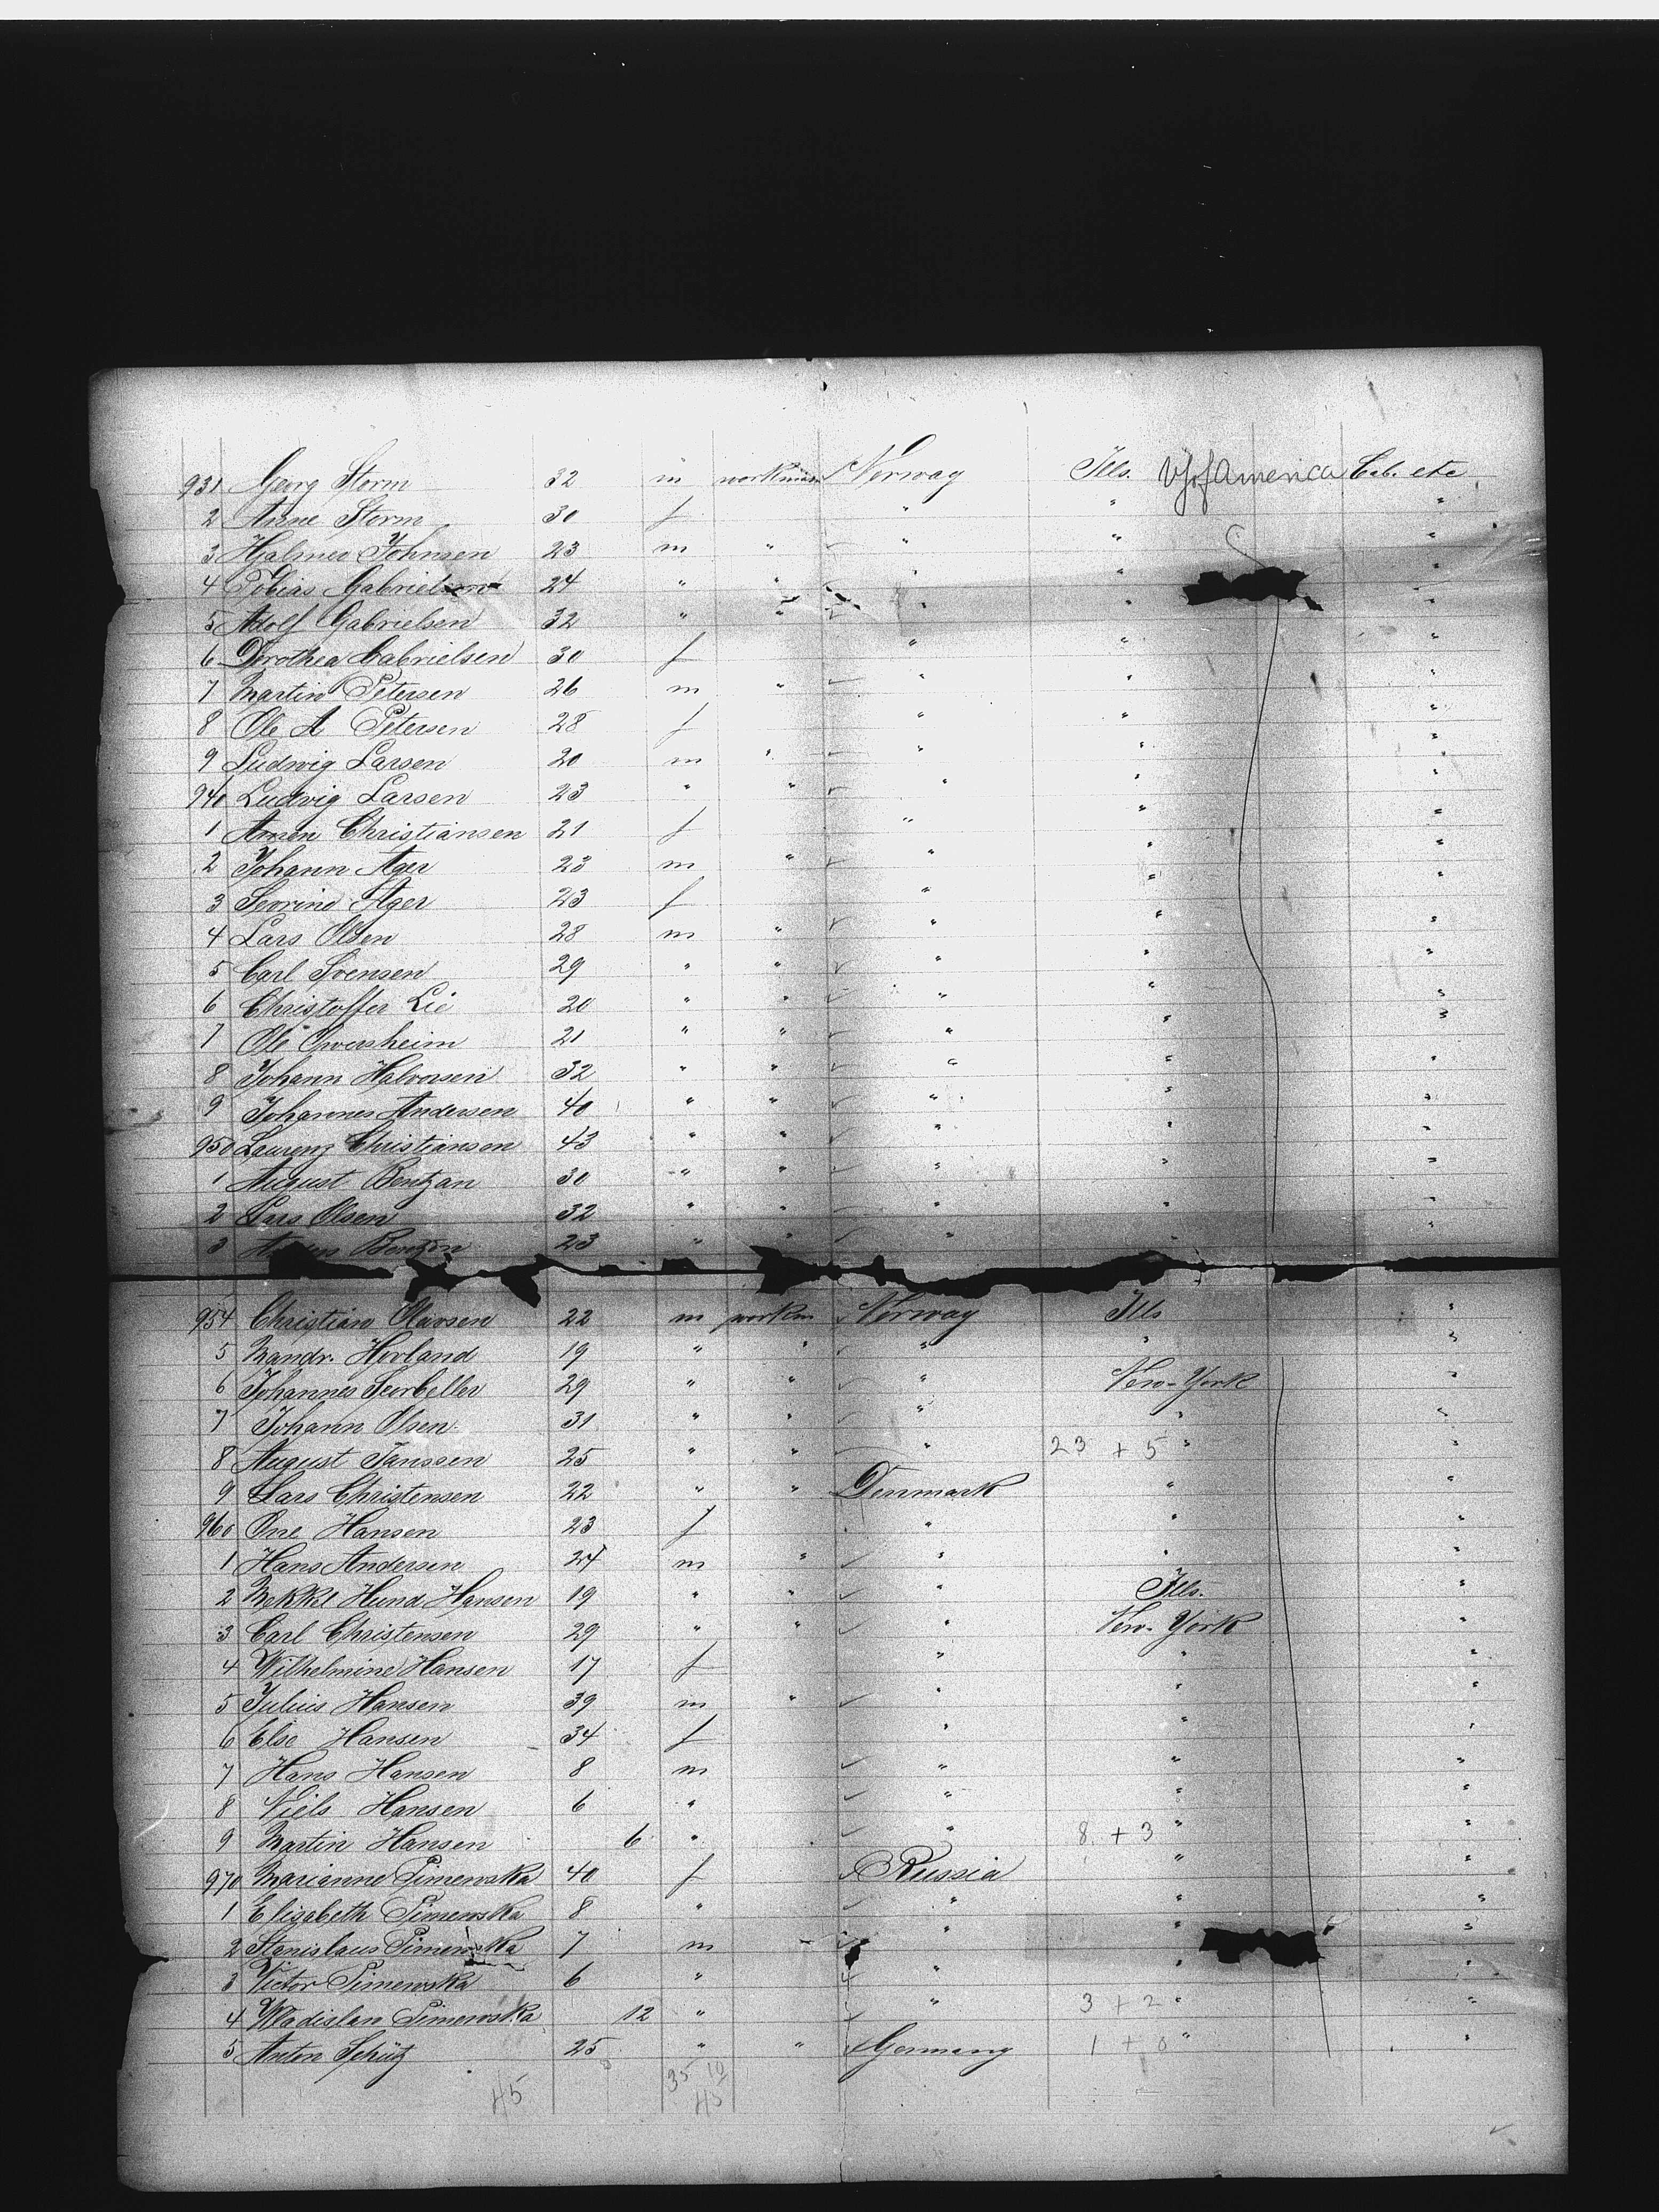 931 Georg Storm 32 m workman Norway Ills. US of America Cab. etc
2 Anne Storm 30 f " " "
3 Hjalmer Johnsen 23 m " " " "
4 Tobias Gabrielsen 24 " " " " "
5 Adolf Gabrielsen 32 " " " " "
6 Dorothea Gabrielsen 30 f " " "
7 Martin Petersen 26 m " " " "
8 Ole A Petersen 28 f " " "
9 Ludwig Larsen 20 m " " " "
940 Ludvig Larsen 23 " " " " "
1 Christiansen 21 f " " "
2 Johann Ager 23 m " " " "
3 Sevrine Ager 23 f " " "
4 Lars Olsen 28 m " " " "
5 Carl Svensen 29 " " " " "
6 Christoffer Lie 20 " " " " "
7 Ole 21 " " " " "
8 Johann Halvorsen 32 " " " " "
9 Johannes Andersen 40 " " " " "
950 Laurenz Christiansen 43 " " " " "
1 August Bentzan 30 " " " " "
2 Lars Olsen 32 " " " " "
3 23 " " " "
954 Christian Olavsen 22 m workm Norway Ills "
5 Mandr. Hovland 19 " " " " "
6 Johannes 29 " " " New-York "
7 Johann Olsen 31 " " " " "
8 August Janssen 25 " " " 23 + 5 " "
9 Lars Christensen 22 " " Denmark " "
960 One Hansen 23 f " " "
1 Hans Andersen 24 m " " " "
2 Hund Hansen 19 " " " Ills. "
3 Carl Christensen 29 " " " New-York "
4 Wilhelmine Hansen 17 f " " "
5 Julius Hansen 39 m " " " "
6 Else Hansen 34 f " " "
7 Hans Hansen 8 m " " "
8 Niels Hansen 6 " " " "
9 Martin Hansen 6 " " 8 + 3 " "
970 Marianne Simewska 40 f Russia " "
1 Elisabeth Simewska 8 " " " "
2 Stanislaus Simewska 7 m " " "
3 Victor Simewska 6 " " " "
4 Wladislav Simewska 12 " " 3 + 2 " "
5 Anton Schütz 25 " " Germany 1 + 0 " "
45 35 10
45